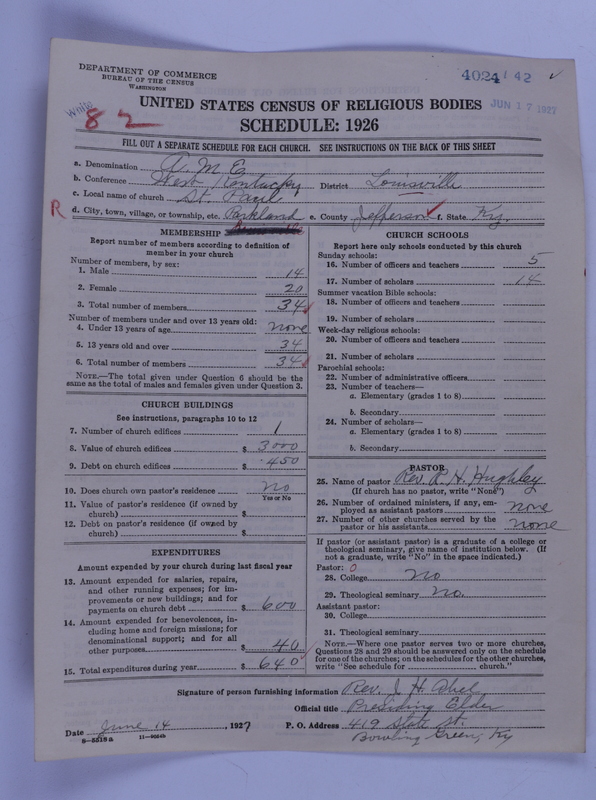 DEPARTMENT OF COMMERCE
BUREAU OF THE CENSUS
WASHINGTON
4024 1 42
White
82
JUN 17 1927
UNITED STATES CENSUS OF RELIGIOUS BODIES
SCHEDULE: 1926
FILL OUT A SEPARATE SCHEDULE FOR EACH CHURCH. SEE INSTRUCTIONS ON THE BACK OF THIS SHEET
a. Denomination A. M. E.
b. Conference West Kentucky District Louisville
c. Local name of church St. Paul
R d. City, town, village, or township, etc. Parkland e. County Jefferson f. State Ky.
MEMBERSHIP
Report number of members according to definition of
member in your church
Number of members, by sex:
1. Male 14
2. Female 20
3. Total number of members 34
Number of members under and over 13 years old:
4. Under 13 years of age none
5. 13 years old and over 34
6. Total number of members 34
NOTE.—The total given under Question 6 should be
the same as the total of males and females given under Question 3.
CHURCH BUILDINGS
See instructions, paragraphs 10 to 12
7. Number of church edifices 1
8. Value of church edifices $ 3000
9. Debt on church edifices $ 450
10. Does church own pastor's residence no
Yes or No
11. Value of pastor's residence (if owned by
church) $
12. Debt on pastor's residence (if owned by
church) $
EXPENDITURES
Amount expended by your church during last fiscal year
13. Amount expended for salaries, repairs,
and other running expenses; for im-
provements or new buildings; and for
payments on church debt $ 600
14. Amount expended for benevolences, in-
cluding home and foreign missions; for
denominational support; and for all
other purposes $ 40
15. Total expenditures during year $ 640
CHURCH SCHOOLS
Report here only schools conducted by this church
Sunday schools:
16. Number of officers and teachers 5
17. Number of scholars 14
Summer vacation Bible schools:
18. Number of officers and teachers
19. Number of scholars
Week-day religious schools:
20. Number of officers and teachers
21. Number of scholars
Parochial schools:
22. Number of administrative officers
23. Number of teachers—
a. Elementary (grades 1 to 8)
b. Secondary
24. Number of scholars—
a. Elementary (grades 1 to 8)
b. Secondary
PASTOR
25. Name of pastor Rev. L. H. Hughley
(If church has no pastor, write "None")
26. Number of ordained ministers, if any, em-
ployed as assistant pastors none
27. Number of other churches served by the
pastor or his assistants none
If pastor (or assistant pastor) is a graduate of a college or
theological seminary, give name of institution below. (If
not a graduate, write "No" in the space indicated.)
Pastor: 0
28. College no
29. Theological seminary no.
Assistant pastor:
30. College
31. Theological seminary
NOTE.—Where one pastor serves two or more churches,
Questions 28 and 29 should be answered only on the schedule
for one of the churches; on the schedules for the other churches,
write "See schedule for church."
Signature of person furnishing information Rev. J. H.
Official title Presiding Elder
Date June 14, 1927 P. O. Address 419 State St.
8-5518a 11-9064b Bowling Green, Ky